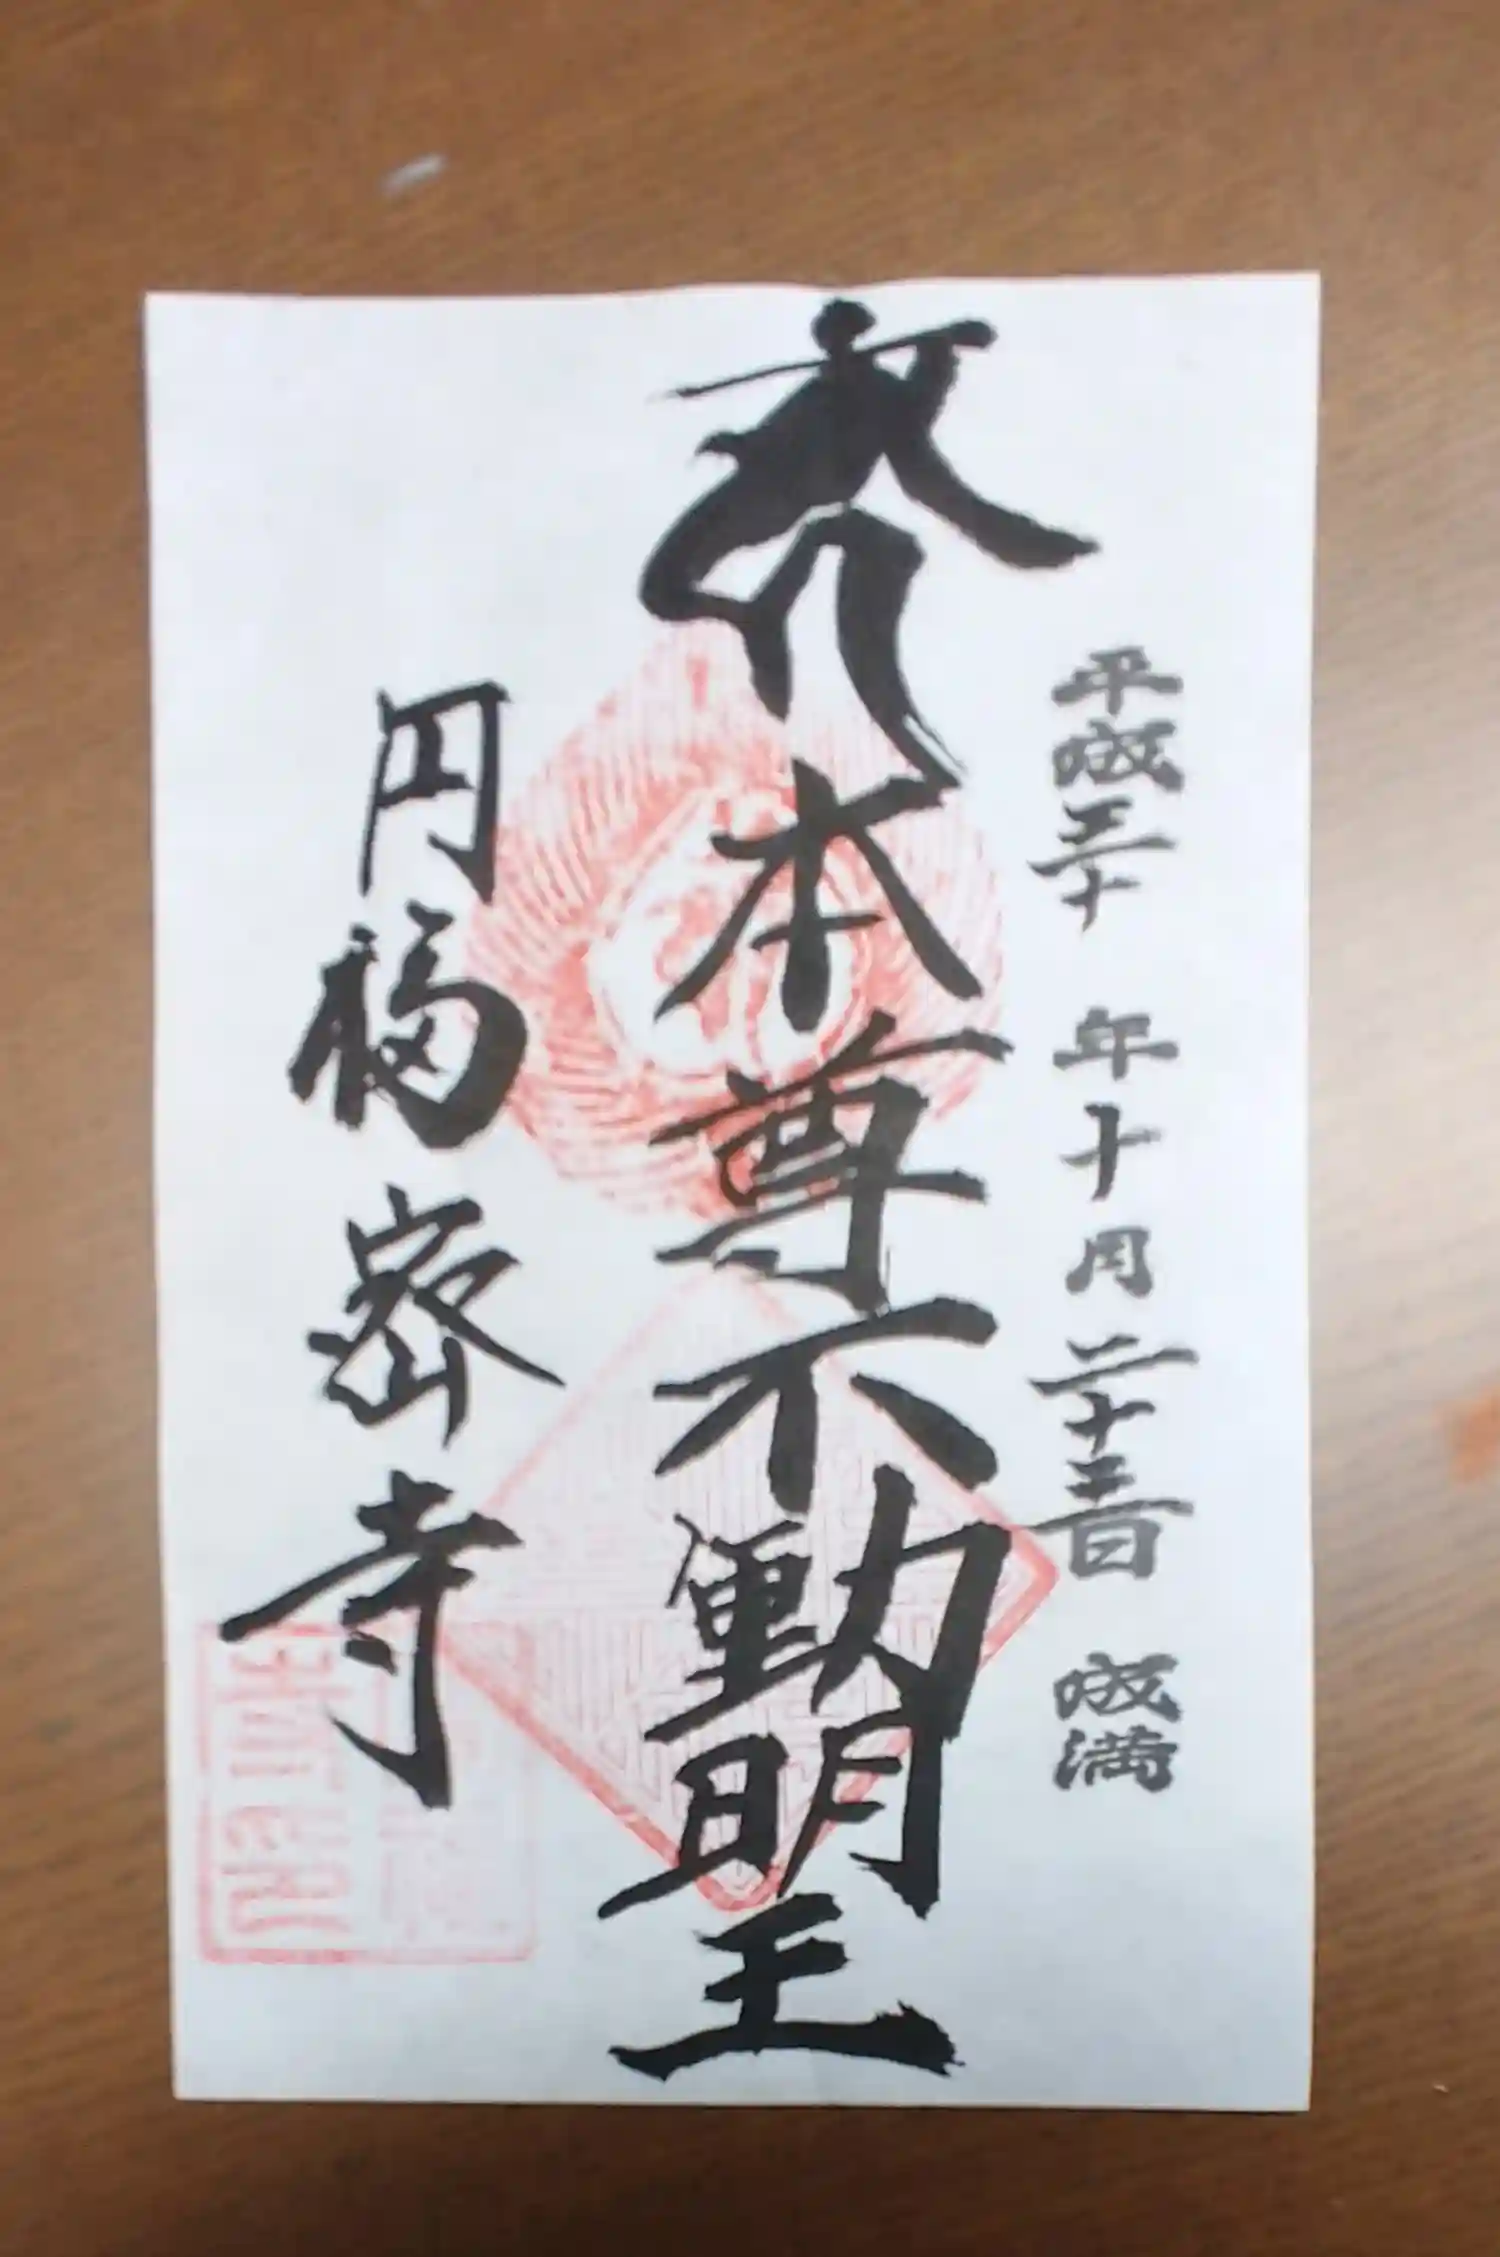 平成三十年十月二十三日 成満
本尊不動明王
円福密寺